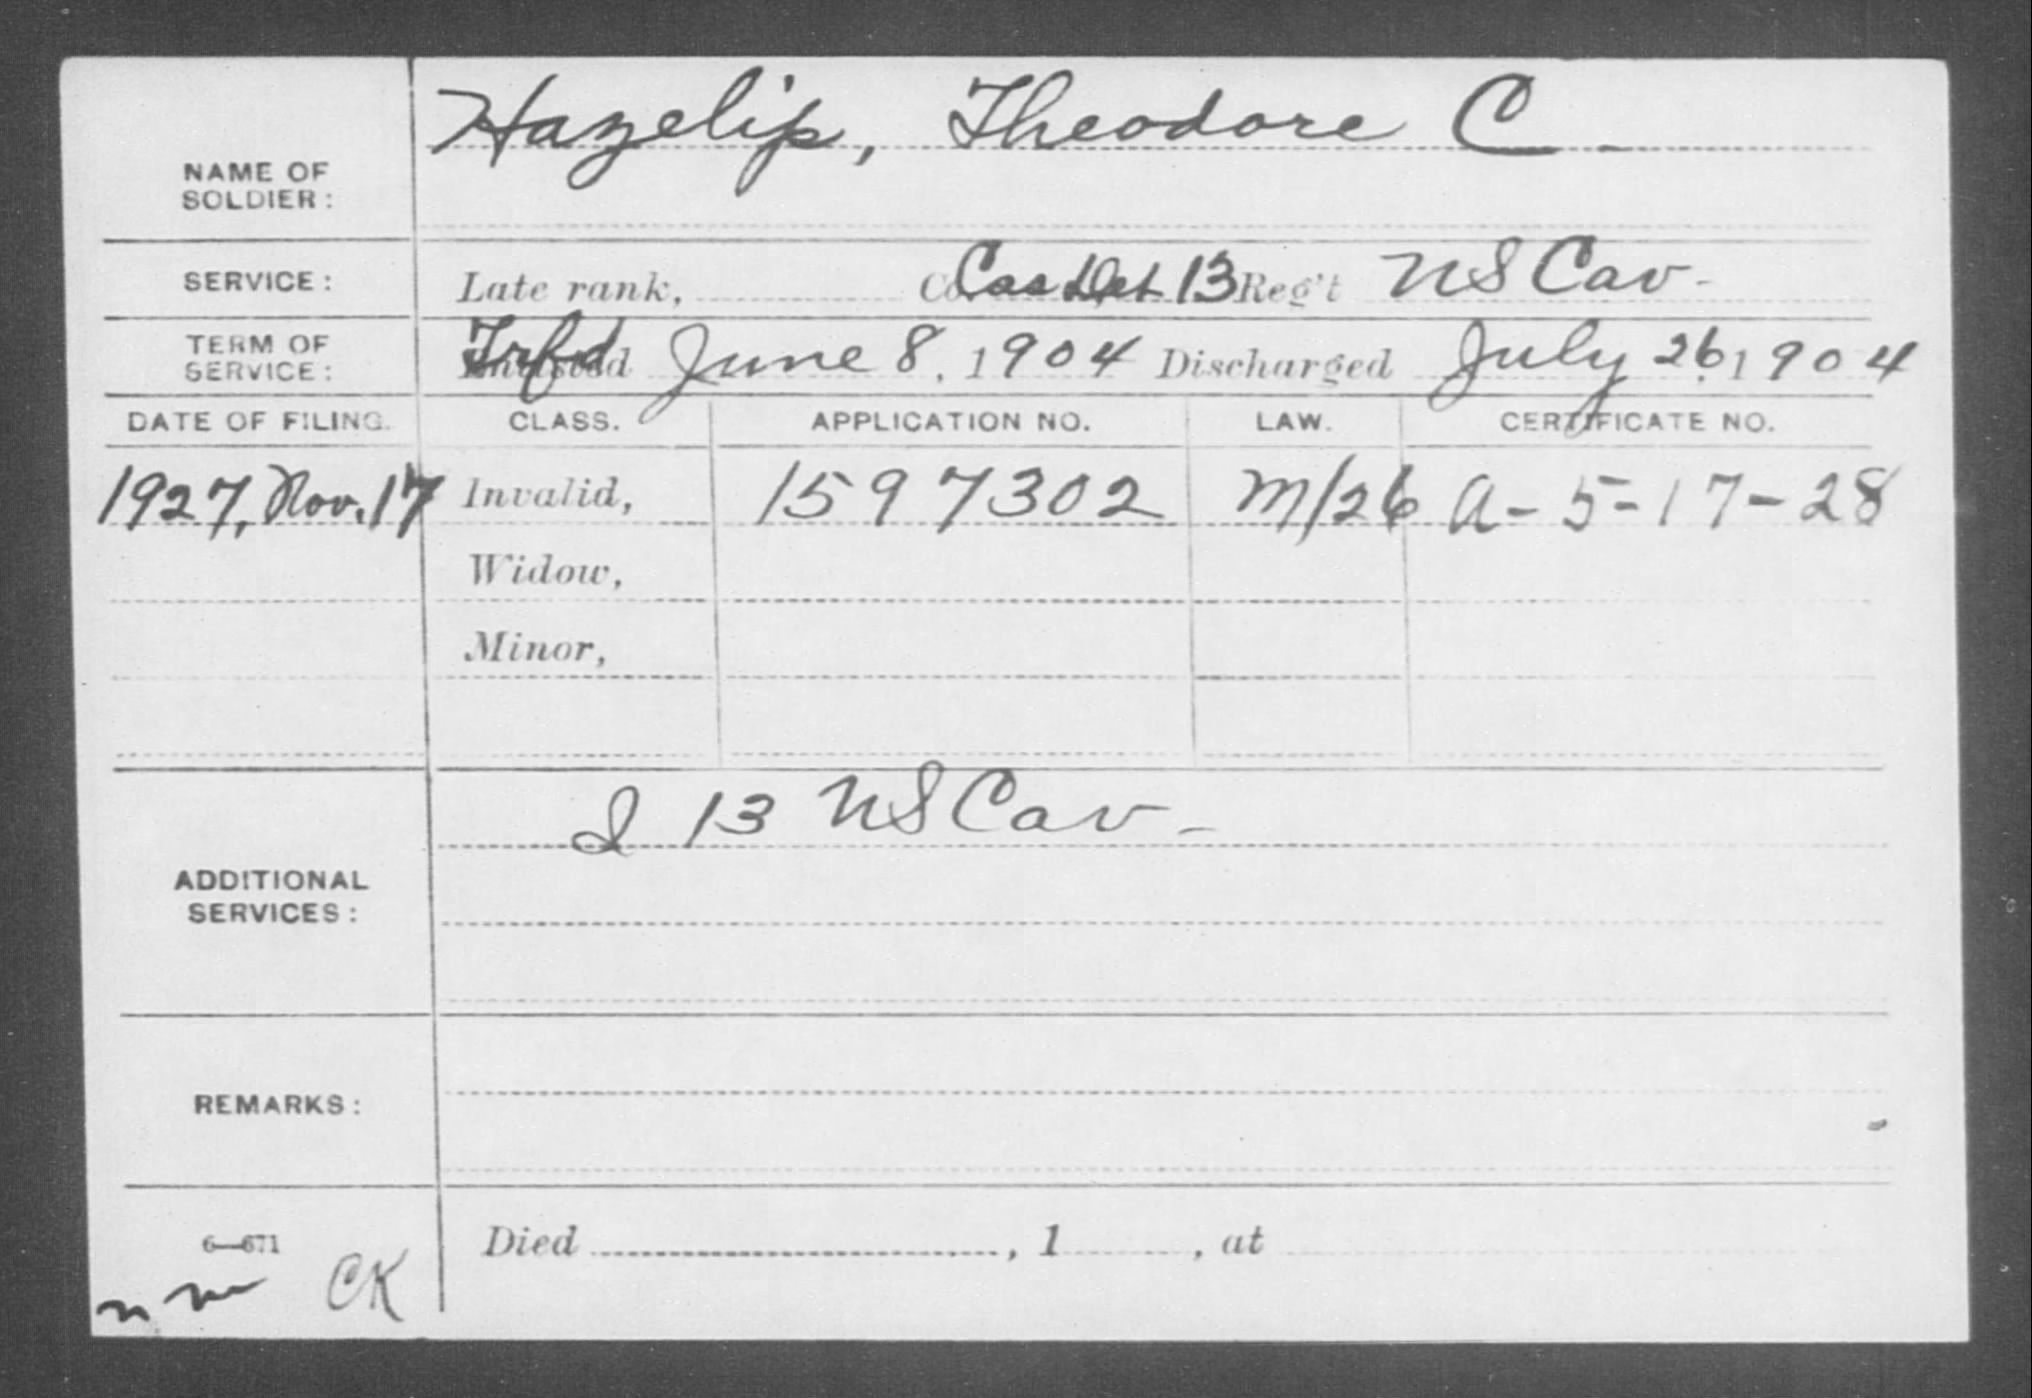 NAME OF SOLDIER: Hazelip, Theodore C.
SERVICE: Late rank, Co. Cas Det 13 Reg't US Cav.
TERM OF SERVICE: Trfd June 8, 1904 Discharged July 26, 1904
DATE OF FILING. CLASS. APPLICATION NO. LAW. CERTIFICATE NO.
1927, Nov. 17 Invalid, 1597302 M/26 A-5-17-28
Widow,
Minor,
ADDITIONAL SERVICES: I 13 US Cav.
REMARKS:
6—671 Died , 1 , at
CK